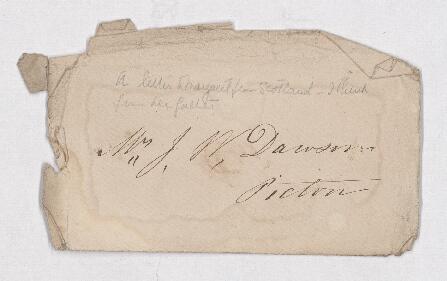 A letter to Margaret from Scotland - I think
from her father
Mr J. W. Dawson
Pictou